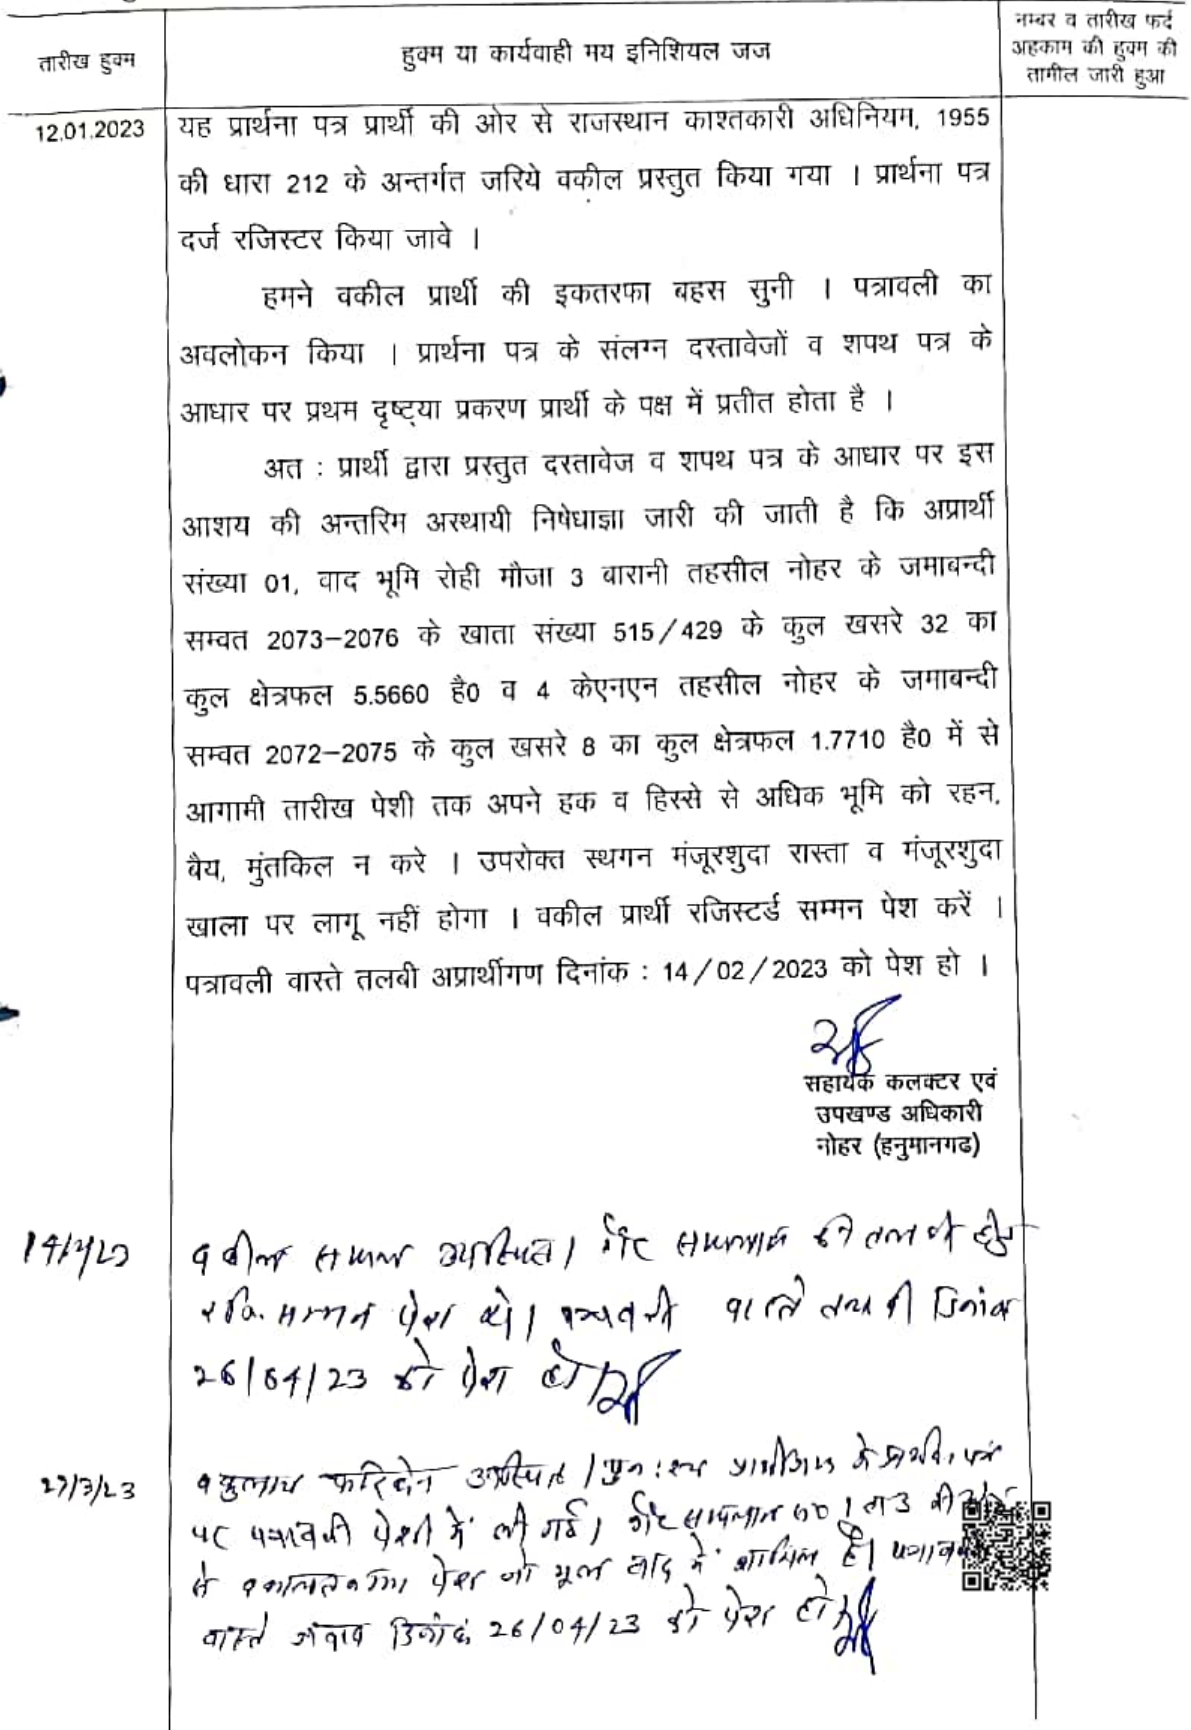 तारीख हुक्म
हुक्म या कार्यवाही मय इनिशियल जज
नम्बर व तारीख फर्द
अहकाम की हुक्म की
तामील जारी हुआ
12.01.2023
यह प्रार्थना पत्र प्रार्थी की ओर से राजस्थान काश्तकारी अधिनियम, 1955
की धारा 212 के अन्तर्गत जरिये वकील प्रस्तुत किया गया । प्रार्थना पत्र
दर्ज रजिस्टर किया जावे ।
हमने वकील प्रार्थी की इकतरफा बहस सुनी । पत्रावली का
अवलोकन किया । प्रार्थना पत्र के संलग्न दस्तावेजों व शपथ पत्र के
आधार पर प्रथम दृष्ट्या प्रकरण प्रार्थी के पक्ष में प्रतीत होता है ।
अत : प्रार्थी द्वारा प्रस्तुत दस्तावेज व शपथ पत्र के आधार पर इस
आशय की अन्तरिम अस्थायी निषेधाज्ञा जारी की जाती है कि अप्रार्थी
संख्या 01, वाद भूमि रोही मौजा 3 बारानी तहसील नोहर के जमाबन्दी
सम्वत 2073–2076 के खाता संख्या 515/429 के कुल खसरे 32 का
कुल क्षेत्रफल 5.5660 है0 व 4 केएनएन तहसील नोहर के जमाबन्दी
सम्वत 2072–2075 के कुल खसरे 8 का कुल क्षेत्रफल 1.7710 है0 में से
आगामी तारीख पेशी तक अपने हक व हिस्से से अधिक भूमि को रहन,
बैय, मुंतकिल न करे । उपरोक्त स्थगन मंजूरशुदा रास्ता व मंजूरशुदा
खाला पर लागू नहीं होगा । वकील प्रार्थी रजिस्टर्ड सम्मन पेश करें ।
पत्रावली वास्ते तलबी अप्रार्थीगण दिनांक : 14/02/2023 को पेश हो ।
सहायक कलक्टर एवं
उपखण्ड अधिकारी
नोहर (हनुमानगढ)
14/2/23
वकील सायल उपस्थित। गैर सायलान की तलबी हेतु
रजि. सम्मन पेश हो। पत्रावली वास्ते तलबी दिनांक
26/04/23 को पेश हो।
27/3/23
वकुलाय फरिकेन उपस्थित।
पर पत्रावली पेशी में ली गई। गैर सायलान सं0 1 ता 3 की ओर
से वकालतनामा पेश जो मूल वाद में शामिल है। पत्रावली
वास्ते जवाब दिनांक 26/04/23 को पेश हो।